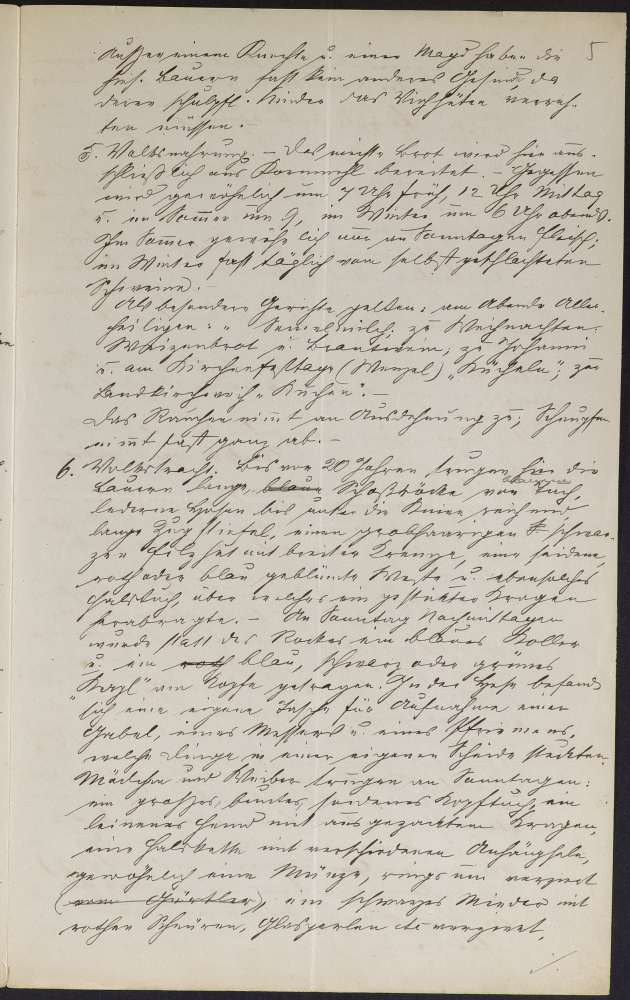 5
Außer einem Knechte u. einer Magd haben die
hies. Bauern fast kein anderes Gesinde, da
deren schulpfl. Kinder das Viehhüten verrich-
ten müssen. -
5. Volksnahrung. - Das meiste Brot wird hier aus-
schließlich aus Kornmehl bereitet. - Gegessen
wird gewöhnlich um 7 Uhr früh, 12 Uhr Mittag
u. im Sommer um 9, im Winter um 6 Uhr abends.
Im Sommer gewöhnlich nur an Sonntagen Fleisch;
im Winter fast täglich vom selbst geschlachteten
Schweine. -
Als besondere Gerichte gelten: am Abende Aller-
heiligen: " Semmelmilch; zu Weihnachten:
Weizenbrot u. Brantwein; zu Johanni
u. am Kirchenfesttage (Wenzel) „Kücheln"; zur
Landkirchweih „Kuchen". -
Das Rauchen nimmt an Ausdehnung zu; Schnupfen
nimmt fast ganz ab. -
6. Volkstracht. Bis vor 20 Jahren trugen hier die
Bauern lange, blaue Schoßröcke von Tuch,
lederne Hosen bis unter die Kniee reichend
lange Zugstiefel, einen grobhaarigen schwar-
zen Filzhut mit breiter Krempe, eine seidene,
roth oder blau geblümte Weste u. ebensolches
Halstuch, über welches ein gestickter Kragen
herabragte. - An Sonntag Nachmittagen
wurde statt des Rockes ein blaues Koller
u. ein roth blau, schwarz oder grünes
"Kapl" am Kopfe getragen. In der Hose befand
sich eine eigene Tasche für Aufnahme einer
Gabel, eines Messers u. eines Pfriemens,
welche Dinge in einer eigenen Scheide steckten.
Mädchen und Weiber trugen an Sonntagen:
ein großes, buntes, seidenes Kopftuch, ein
leinenes Hemd mit ausgezacktem Kragen,
eine Halskette mit verschiedenen Anhängseln,
gewöhnlich eine Münze, rings um verziert
(vom Gürtler), ein schwarzes Mieder mit
rothen Schnüren, Glasperlen etc verziert,